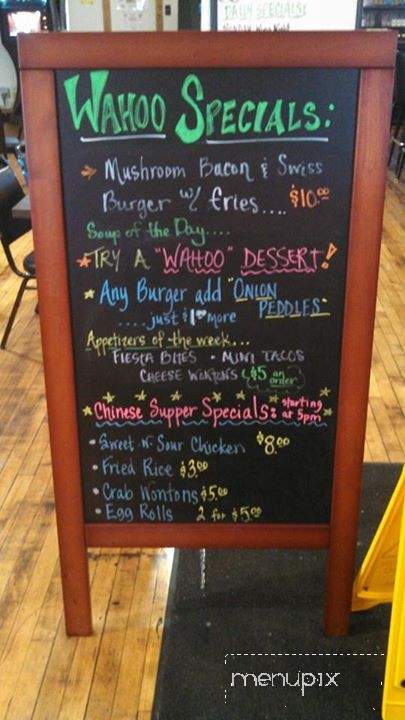 DAILY SPECIALS!
WAHOO SPECIALS:
Mushroom Bacon & Swiss
Burger w/ fries.... $10.00
Soup of the Day....
*TRY A "WAHOO" DESSERT!
* Any Burger add "ONION
PEDDLES"
....just $1.00 more
Appetizers of the week...
FIESTA BITES • MINI TACOS
CHEESE WONTONS $5 an
order
*Chinese Supper Specials: starting
at 5pm
• Sweet N Sour Chicken $8.00
• Fried Rice $3.00
• Crab Wontons $5.00
• Egg Rolls 2 for $5.00
menupix